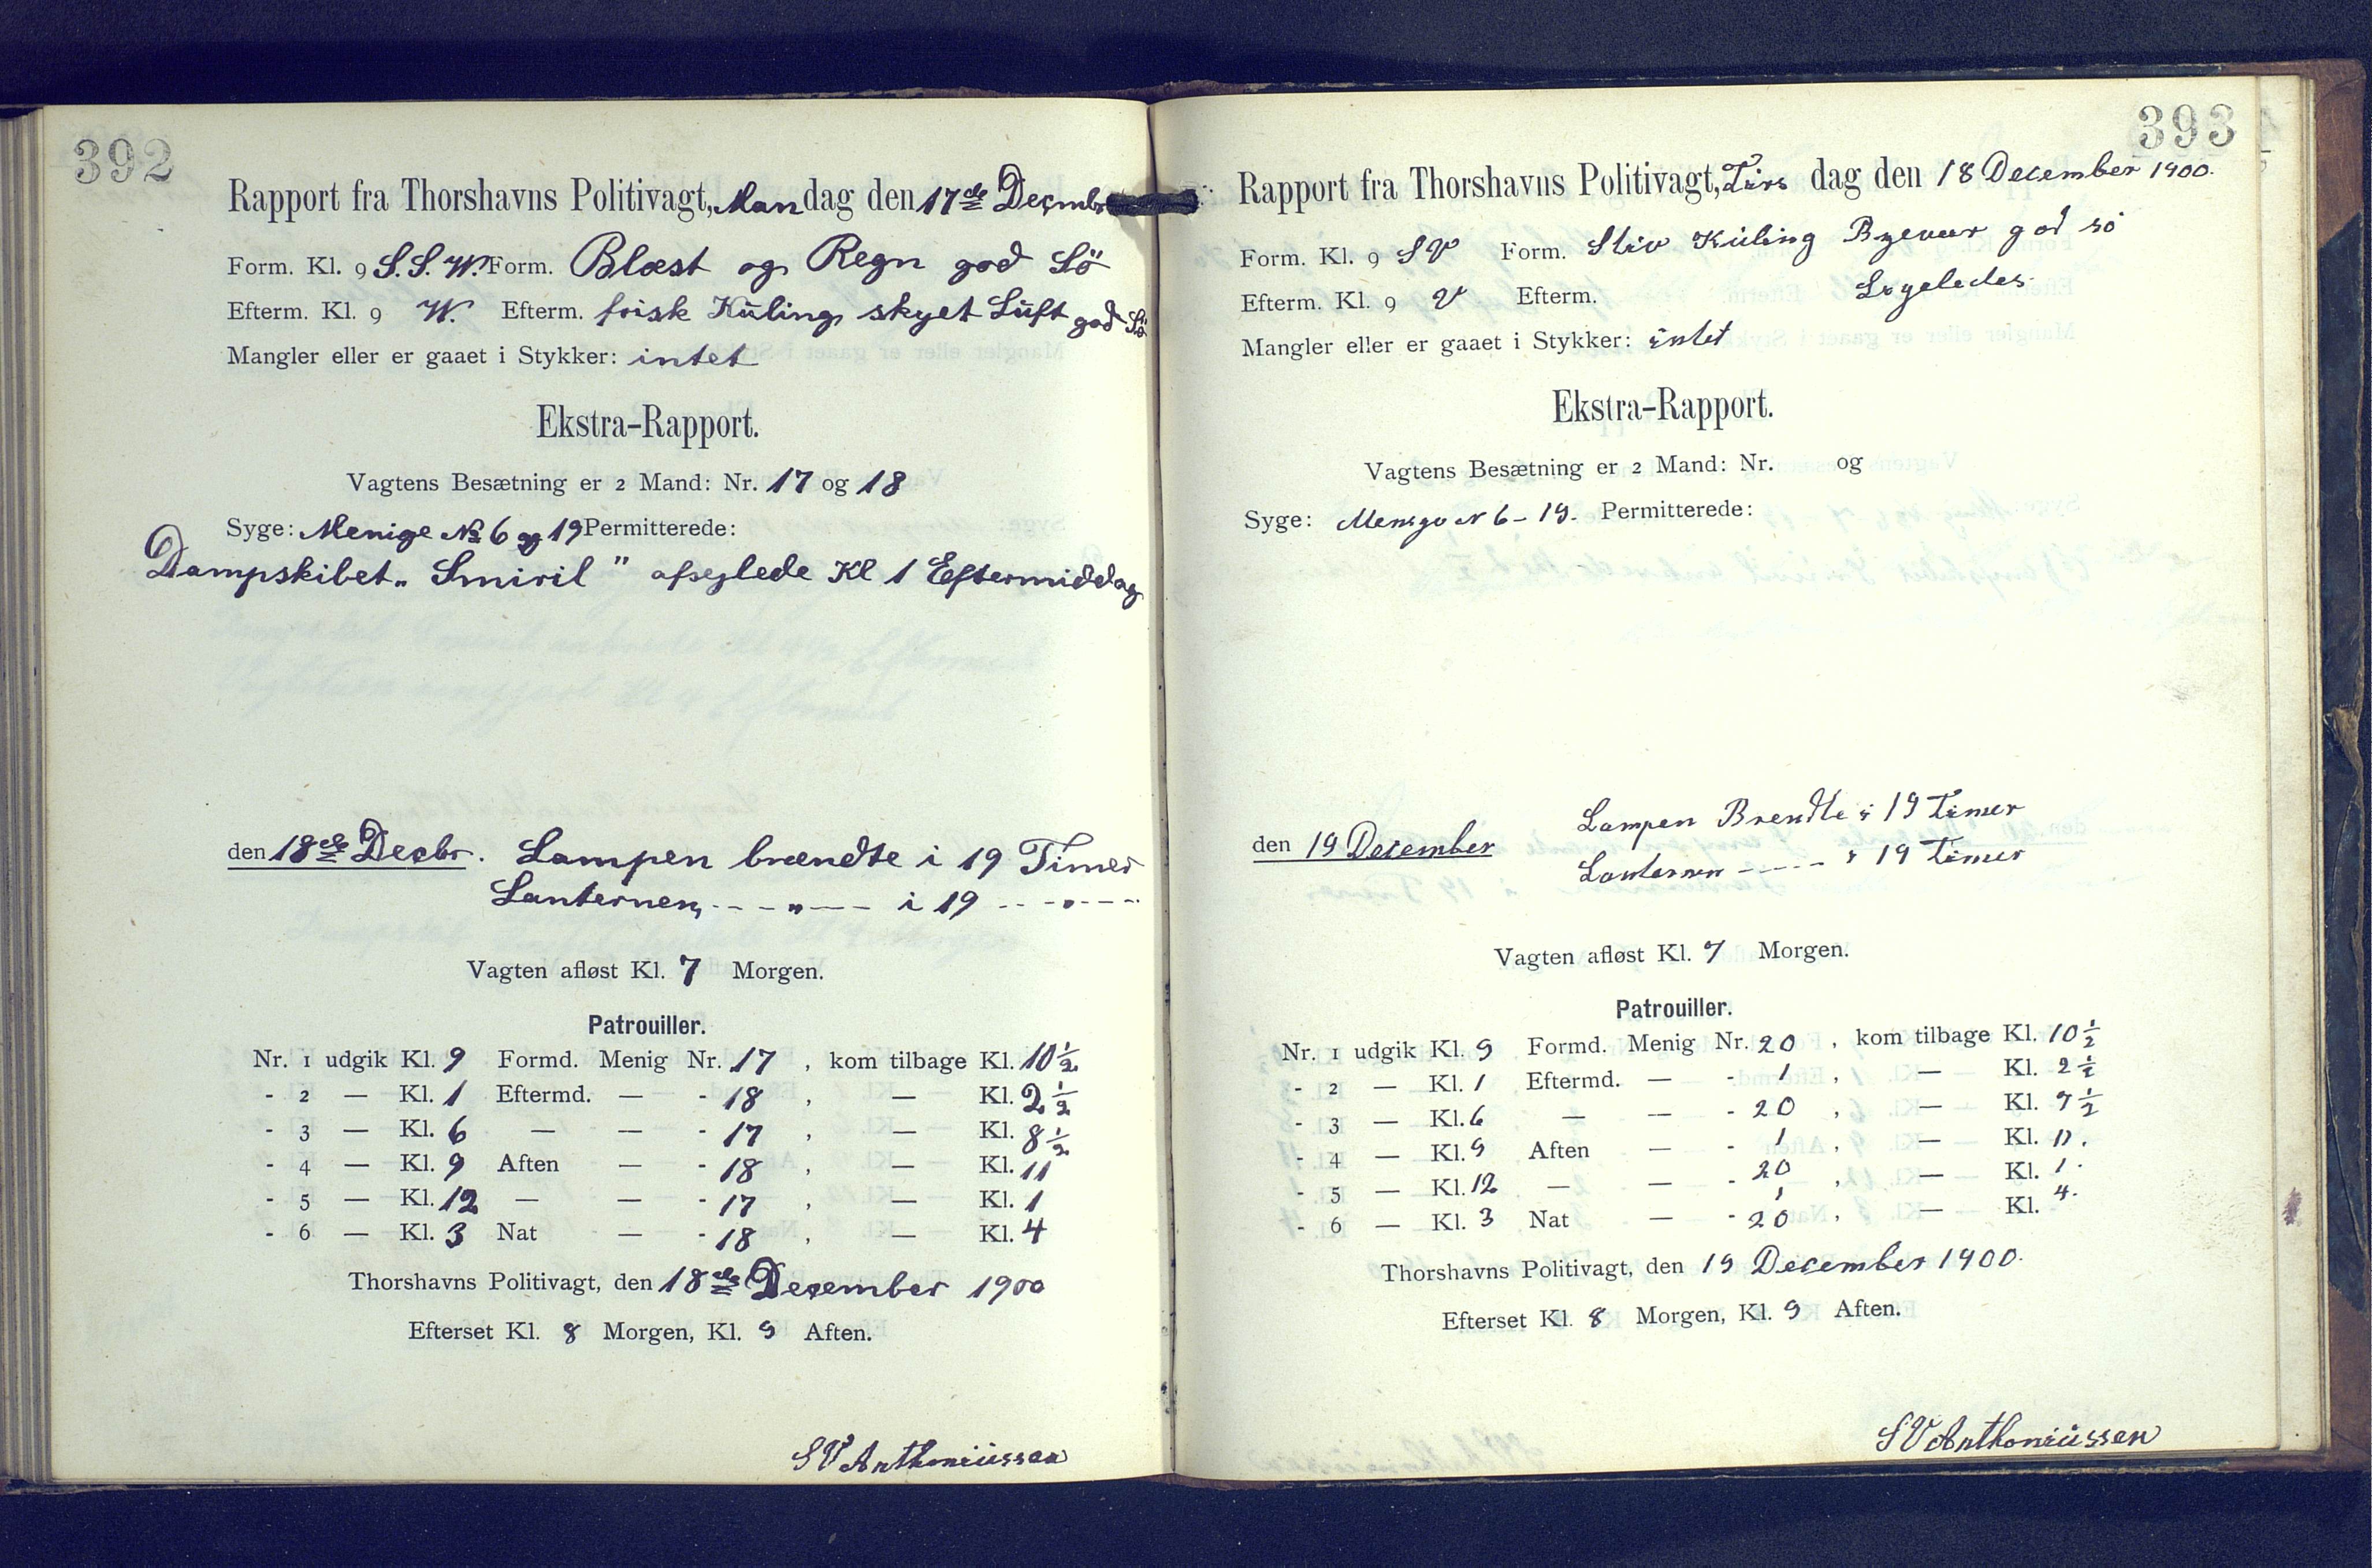 392
Rapport fra Thorshavns Politivagt, Man dag den 17de Decmbr
Form. Kl. 9 S.S.W. Form. Blæst og Regn god Sö
Efterm. Kl. 9 W. Efterm. frisk Kůling skyet Lůft god Sö
Mangler eller er gaaet i Stykker: intet
Ekstra-Rapport.
Vagtens Besætning er 2 Mand: Nr. 17 og 18
Syge: Menige No 6 og 19 Permitterede:
Dampskibet „Smiril" afseglede Kl 1 Eftermiddag
den 18de Decbr. Lampen brændte i 19 Timer
Lanternen, - - - „ - - - i 19 - - - „ - - -
Vagten afløst Kl. 7 Morgen.
Patrouiller.
Nr. 1 udgik Kl. 9 Formd. Menig Nr. 17 , kom tilbage Kl. 10½
- 2 — Kl. 1 Eftermd. — - 18 , — Kl. 2½
- 3 — Kl. 6 — — - 17 , — Kl. 8½
- 4 — Kl. 9 Aften — - 18 , — Kl. 11
- 5 — Kl. 12 — — - 17 , — Kl. 1
- 6 — Kl. 3 Nat — - 18 , — Kl. 4
Thorshavns Politivagt, den 18de December 1900
Efterset Kl. 8 Morgen, Kl. 9 Aften.
SV Anthoniůssen
393
Rapport fra Thorshavns Politivagt, Tirs dag den 18 December 1900.
Form. Kl. 9 SV Form. Stiv Kůling god sö
Efterm. Kl. 9 V Efterm. Ligeledes
Mangler eller er gaaet i Stykker: intet
Ekstra-Rapport.
Vagtens Besætning er 2 Mand: Nr. og
Syge: N 6 - 19. Permitterede:
den 19 December Lampen Brendte i 19 Timer
Lanternen - - - - - i 19 Timer
Vagten afløst Kl. 7 Morgen.
Patrouiller.
Nr. 1 udgik Kl. 9 Formd. Menig Nr. 20 , kom tilbage Kl. 10½
- 2 — Kl. 1 Eftermd. — - 1 , — Kl. 2½
- 3 — Kl. 6 — — - 20 , — Kl. 7½
- 4 — Kl. 9 Aften — - 1 , — Kl. 11.
- 5 — Kl. 12 — — - 20 , — Kl. 1.
- 6 — Kl. 3 Nat — - 1 20 , — Kl. 4.
Thorshavns Politivagt, den 19 December 1900.
Efterset Kl. 8 Morgen, Kl. 9 Aften.
SV Anthoniůssen